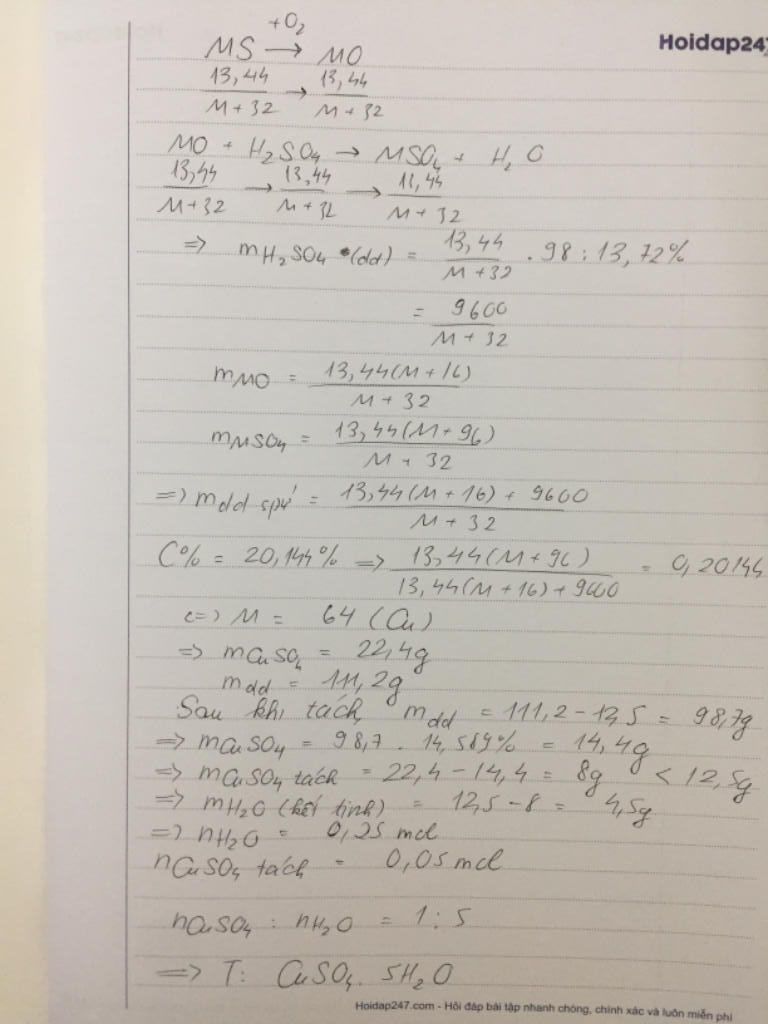 Hoidap247
+O2
MS → MO
13,44/M+32 → 13,44/M+32
MO + H2SO4 → MSO4 + H2O
13,44/M+32 → 13,44/M+32 → 13,44/M+32
=> mH2SO4 (dd) = 13,44/M+32 . 98 : 13,72%
= 9600/M+32
mMO = 13,44(M+16)/M+32
mMSO4 = 13,44(M+96)/M+32
=> mdd spứ = 13,44(M+16) + 9600/M+32
C% = 20,144% => 13,44(M+96)/13,44(M+16)+9600 = 0,20144
<=> M = 64 (Cu)
=> mCuSO4 = 22,4g
mdd = 111,2g
Sau khi tách, mdd = 111,2 - 12,5 = 98,7g
=> mCuSO4 = 98,7 . 14,589% = 14,4g
=> mCuSO4 tách = 22,4 - 14,4 = 8g < 12,5g
=> mH2O (kết tinh) = 12,5 - 8 = 4,5g
=> nH2O = 0,25 mol
nCuSO4 tách = 0,05 mol
nCuSO4 : nH2O = 1 : 5
=> T: CuSO4.5H2O
Hoidap247.com - Hỏi đáp bài tập nhanh chóng, chính xác và luôn miễn phí